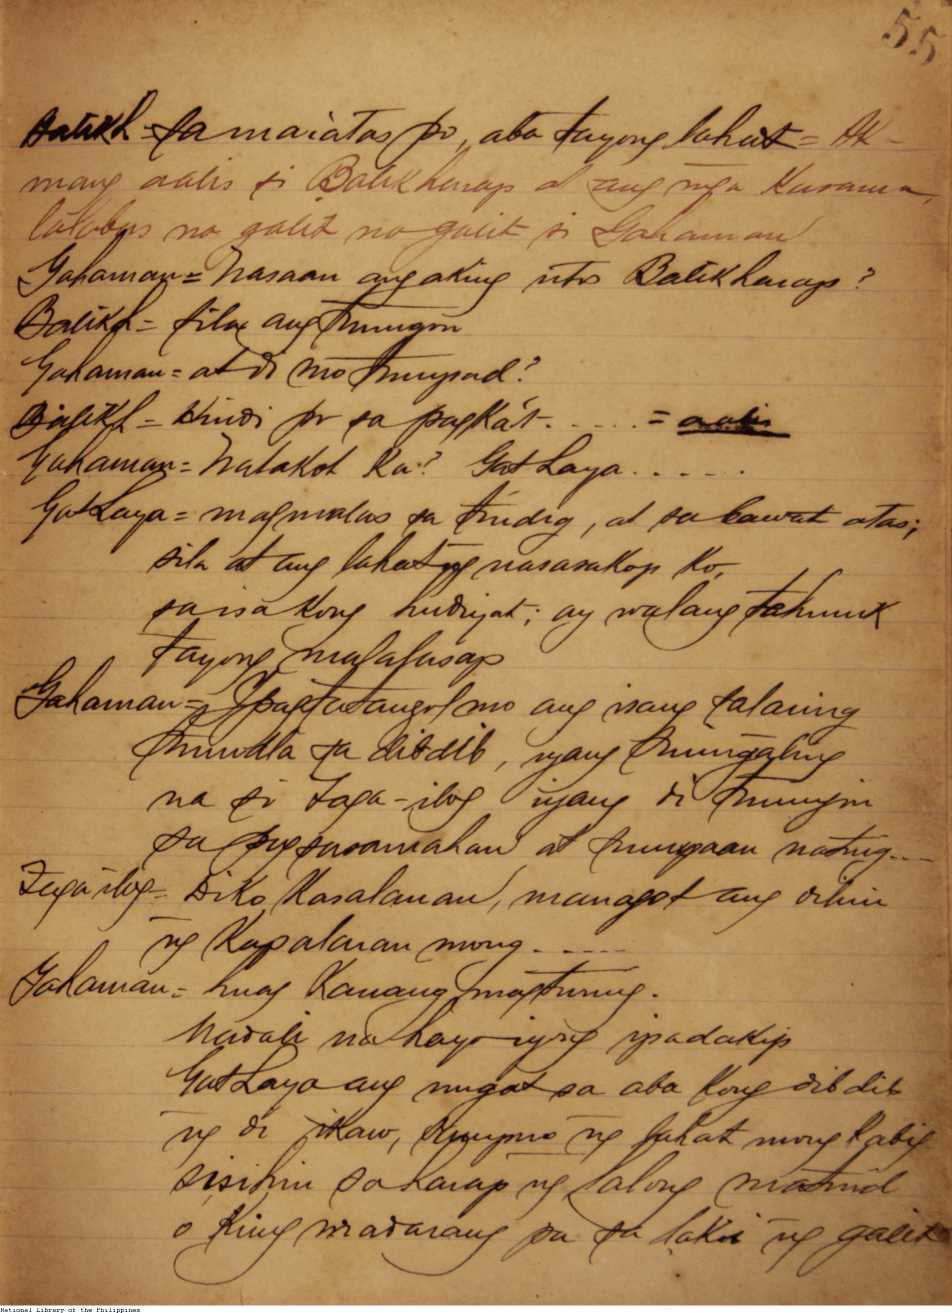 55
Balikh = Sa maiatas po, aba tayong lahat = Ak-
mang aalis si Balikharap at ang mga Kasama,
lalabas na galit na galit si Gahaman
Gahaman = Nasaan ang aking utos Balikharap?
Balikh = Sila ang
Gahaman = at di mo tinupad?
Balikh = Hindi po sa pagka't..... = aalis
Gahaman = Natakot Ka? Gat Laya......
Gat Laya = magmalas sa tindig, at sa bawat atas;
sila at ang lahat ng nasasakop Ko,
sa isa Kong hudyat; ay walang
tayong
Gahaman = Ipagtatangol mo ang isang
sa dibdib, iyang
na si Taga-ilog iyang di
sa pagsasamahan at nating...
Taga-ilog = Diko Kasalanan, managot ang dilim
ng Kapalaran mong......
Gahaman = huag Kanang magturing.
Madali na hayo iyong ipadakip
Gat Laya ang sa aba Kong dibdib
ng di ikaw, ng lahat mong Kabig
sisihin sa harap ng lalong
o King madarang pa sa laki ng galit
National Library of the Philippines